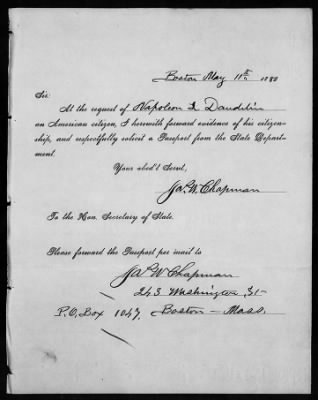 Boston May 11th 1880
Sir:
At the request of Napoleon L Dandelin
an American citizen, I herewith forward evidence of his citizen-
ship, and respectfully solicit a Passport from the State Depart-
ment.
Your obed't Servt,
Jas. W. Chapman
To the Hon. Secretary of State.
Please forward the Passport per mail to
Jas W Chapman
243 Washington St
P.O. Box 1047, Boston — Mass.